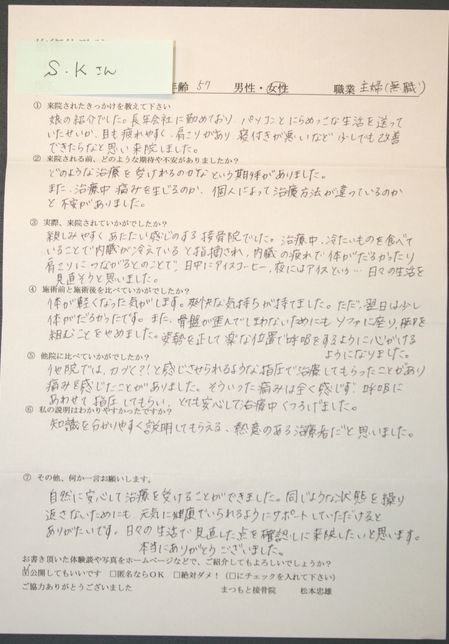 S.Kさん
年齢 57 男性・女性 職業 主婦(無職)
① 来院されたきっかけを教えて下さい
娘の紹介でした。長年会社に勤めており、パソコンとにらめっこな生活を送って
いたせいか、目も疲れやすく、肩こりがあり、寝付きが悪いなど少しでも改善
できたらなと思い来院しました。
② 来院される前、どのような期待や不安がありましたか?
どのような治療を受けれるのかなという期待がありました。
また、治療中痛みを生じるのか、個人によって治療方法が違っているのか
と不安がありました。
③ 実際、来院されていかがでしたか?
親しみやすくあたたかい感じのする接骨院でした。治療中、冷たいものを食べて
いることで内臓が冷えていると指摘され、内臓の疲れで体がだるかったり
肩こりにつながるとのことで、日中にアイスコーヒー、夜にはアイスという… 日々の生活を
見直そうと思いました。
④ 施術前と施術後を比べていかがでしたか?
体が軽くなった気がします。爽快な気持ちが持てました。ただ、翌日は少し
体がだるかったです。また、骨盤が歪んでしまわないためにもソファに座り、脚を
組むことをやめました。姿勢を正して楽な位置で呼吸をするように心がける
ようになりました。
⑤ 他院に比べていかがでしたか?
他院では、ガクッ?!と感じさせられるような指圧で治療してもらったことがあり
痛みを感じたことがありました。そういった痛みは全く感じず、呼吸に
あわせて指圧してもらい、とても安心して治療中くつろげました。
⑥ 私の説明はわかりやすかったですか?
知識を分かりやすく説明してもらえる、熱意のある治療者だと思いました。
⑦ その他、何か一言お願いします。
自然に安心して治療を受けることができました。同じような状態を繰り
返さないためにも、元気に健康でいられるようにサポートしていただけると
ありがたいです。日々の生活で見直した点を確認しに来院したいと思います。
本当にありがとうございました。
お書き頂いた体験談や写真をホームページなどで、ご紹介してもよろしいでしょうか?
☑公開してもいいです □匿名ならOK □絶対ダメ! (□にチェックを入れて下さい)
ご協力ありがとうございました まつもと接骨院 松本忠雄